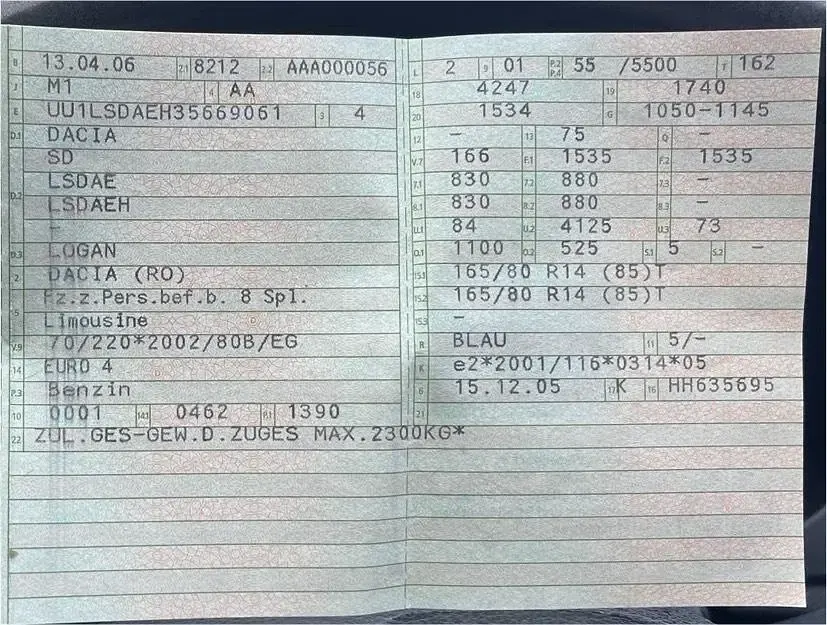 B 13.04.06 2.1 8212 2.2 AAA000056
J M1 4 AA
E UU1LSDAEH35669061 3 4
D.1 DACIA
SD
D.2 LSDAE
LSDAEH
-
D.3 LOGAN
2 DACIA (RO)
Fz.z.Pers.bef.b. 8 Spl.
5 Limousine
V.9 70/220*2002/80B/EG
14 EURO 4
P.3 Benzin
10 0001 14.1 0462 P.1 1390
22 ZUL.GES-GEW.D.ZUGES MAX.2300KG*
L 2 9 01 P.2 P.4 55 /5500 T 162
18 4247 19 1740
20 1534 G 1050-1145
12 - 13 75 Q -
V.7 166 F.1 1535 F.2 1535
7.1 830 7.2 880 7.3 -
8.1 830 8.2 880 8.3 -
U.1 84 U.2 4125 U.3 73
O.1 1100 O.2 525 S.1 5 S.2 -
15.1 165/80 R14 (85)T
15.2 165/80 R14 (85)T
15.3 -
R BLAU 11 5/-
K e2*2001/116*0314*05
6 15.12.05 17 K 16 HH635695
21